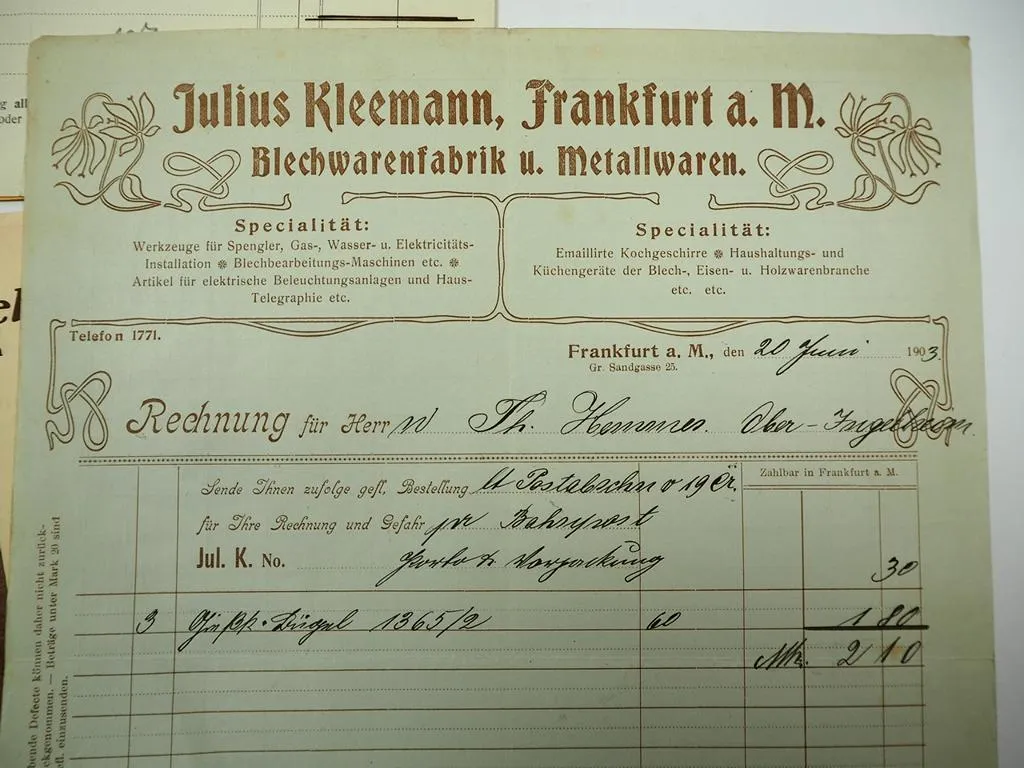 g all
oder
Julius Kleemann, Frankfurt a. M.
Blechwarenfabrik u. Metallwaren.
Specialität:
Werkzeuge für Spengler, Gas-, Wasser- u. Elektricitäts-
Installation ❋ Blechbearbeitungs-Maschinen etc. ❋
Artikel für elektrische Beleuchtungsanlagen und Haus-
Telegraphie etc.
Specialität:
Emaillirte Kochgeschirre ❋ Haushaltungs- und
Küchengeräte der Blech-, Eisen- u. Holzwarenbranche
etc. etc.
Telefon 1771.
Frankfurt a. M., den 20 Juni 1903.
Gr. Sandgasse 25.
Rechnung für Herrn Th. Hemmes. Ober-Ingelheim.
Zahlbar in Frankfurt a. M.
Sende Ihnen zufolge gefl. Bestellung lt 19
für Ihre Rechnung und Gefahr pr
Jul. K. No. Porto & Verpackung 30
3 Bügel 1365/2 60 1 80
Mk. 2 10
bende Defecte können daher nicht zurück-
ckgenommen. — Beträge unter Mark 20 sind
efl. einzusenden.